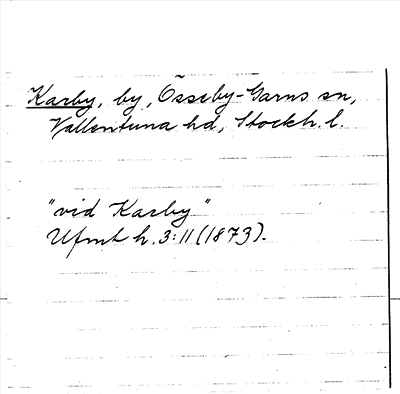 Karby, by, Össeby-Garns sn,
Vallentuna hd, Stockh. l.
"vid Karby"
Ufmt h. 3:11 (1873).